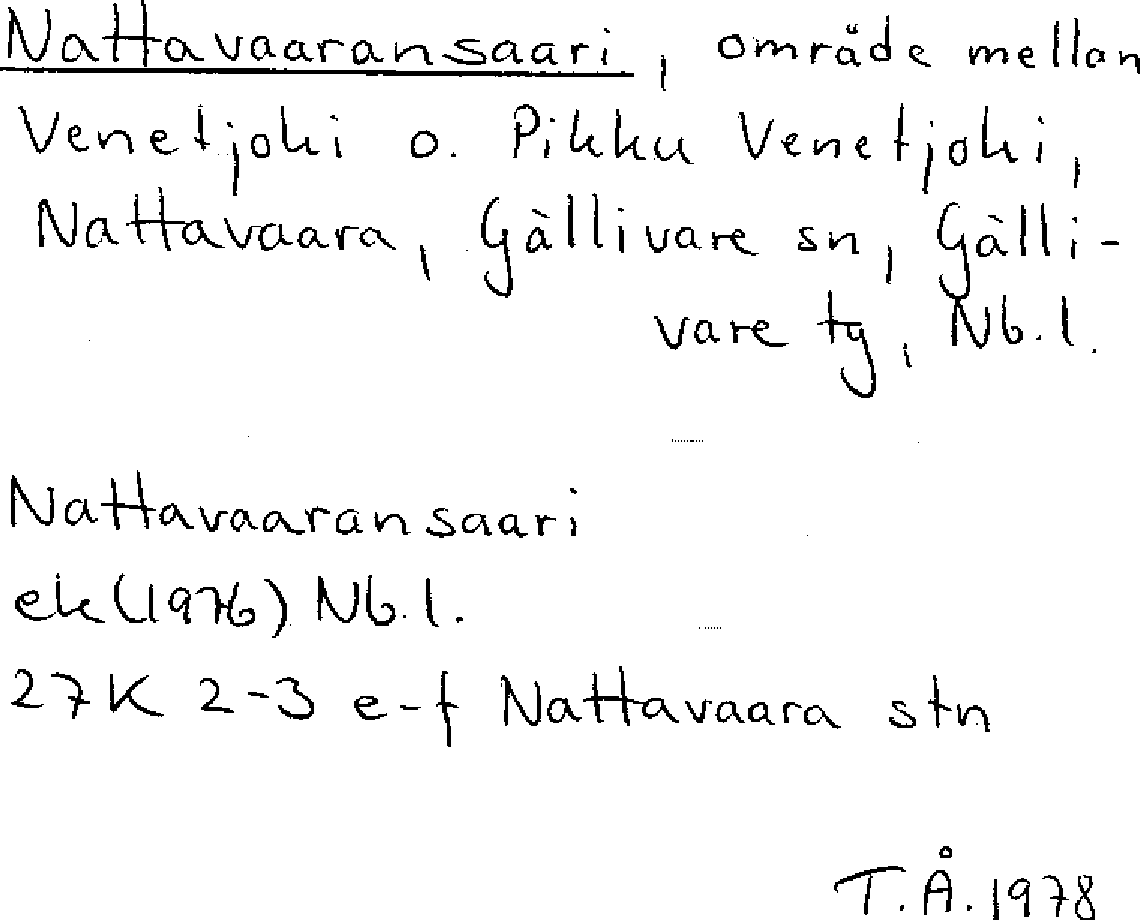 Nattavaaransaari, område mellan
Venetjoki o. Pikku Venetjoki,
Nattavaara, Gällivare sn, Gälli-
vare tg, Nb.l.
Nattavaaransaari
ek(1976) Nb.l.
27K 2-3 e-f Nattavaara stn
T.Å. 1978